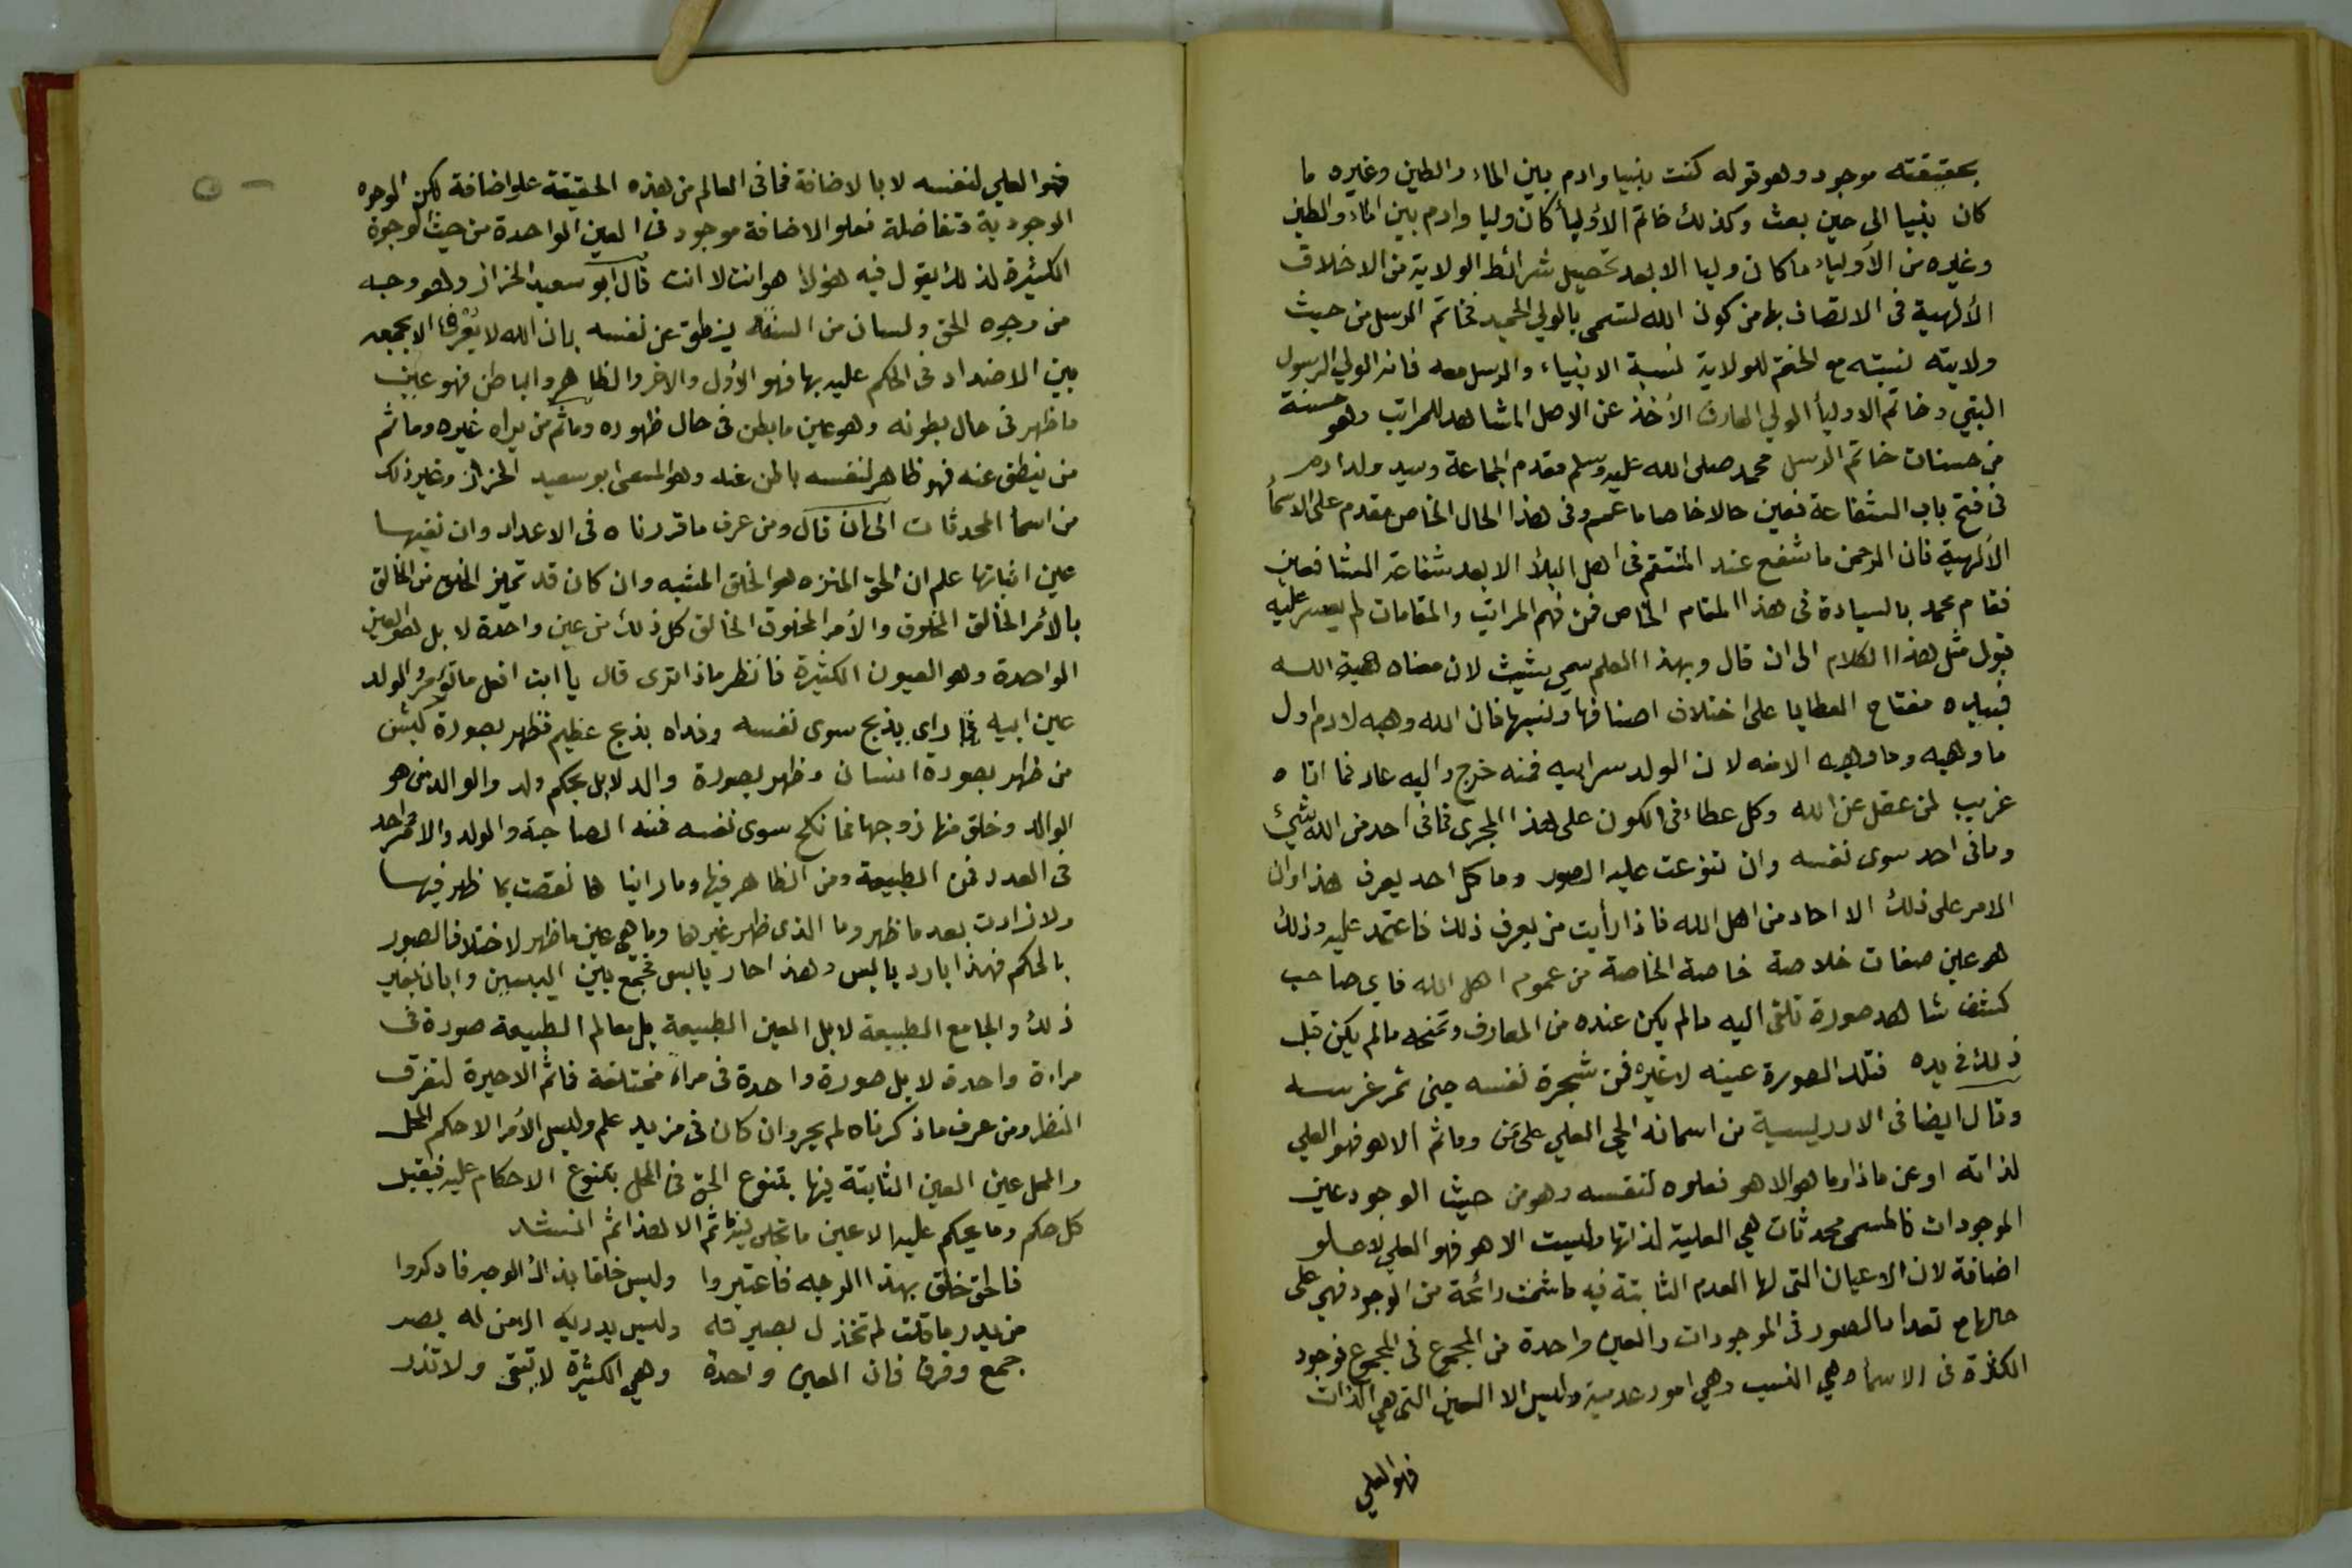 بحقيقته موجود وهو قوله كنت نبيا وادم بين الماء والطين وغيره ما
كان نبيا الى حين بعث وكذلك خاتم الأوليأ كان وليا وادم بين الماء والطين
وغيره من الأولياء ما كان وليا الا بعد تحصيل شرائط الولاية من الاخلاق
الألهية فى الاتصاف بها من كون الله تسمى بالولي الحميد فخاتم الرسل من حيث
ولايته نسبته مع الختم للولاية نسبة الانبياء والرسل معه فانه الولي الرسول
النبي وخاتم الاوليأ الولي العارف الأخذ عن الاصل المشاهد للمراتب وهو حسنة
من حسنات خاتم الرسل محمد صلى الله عليه وسلم مقدم الجماعة وسيد ولد ادم
فى فتح باب الشفاعة فعين حالا خاصا ما عمم وفى هذا الحال الخاص مقدم على الاسمأ
الألهية فان الرحمن ما شفع عند المنتقم فى اهل البلأ الا بعد شفاعة الشافعين
فقام محمد بالسيادة فى هذا المقام الخاص فمن فهم المراتب والمقامات لم يعسر عليه
قبول مثل هذا الكلام الى ان قال وبهذا العلم سمي شيث لان معناه هبة الله
فبيده مفتاح العطايا على اختلاف اصنافها ونسبها فان الله وهبه لادم اول
ما وهبه وما وهبه الا منه لان الولد سر ابيه فمنه خرج واليه عاد فما اتاه
غريب لمن عقل عن الله وكل عطاء فى الكون على هذا المجرى فما فى احد من الله شيئ
وما فى احد سوى نفسه وان تنوعت عليه الصور وما كل احد يعرف هذا وان
الامر على ذلك الا احاد من اهل الله فاذا رأيت من يعرف ذلك فاعتمد عليه وذلك
هو عين صفات خلاصة خاصة الخاصة من عموم اهل الله فاي صاحب
كشف شاهد صورة تلقى اليه ما لم يكن عنده من المعارف وتمنحه ما لم يكن قبل
ذلك فى يده فتلك الصورة عينه لا غيره فمن شجرة نفسه جنى ثمر غرسه
وقال ايضا فى الادريسية من اسمائه الحي العلي على من وما ثم الا هو فهو العلي
لذاته او عن ماذا وما هو الا هو فعلوه لنفسه وهو من حيث الوجود عين
الموجودات فالمسمى محدثات هي العلية لذاتها وليست الا هو فهو العلي لا علو
اضافة لان الاعيان التى لها العدم الثابتة فيه ما شمت رائحة من الوجود فهي على
حالها مع تعداد الصور فى الموجودات والعين واحدة من المجموع فى المجموع فوجود
الكثرة فى الاسمأ وهي النسب وهي امور عدمية وليس الا العين التى هي الذات
فهو العلي
فهو العلي لنفسه لا بالاضافة فما فى العالم من هذه الحقيقة علو اضافة لكن الوجوه
الوجودية متفاضلة فعلو الاضافة موجود فى العين الواحدة من حيث الوجوه
الكثيرة لذلك يقول فيه هو لا هو انت لا انت قال ابو سعيد الخراز وهو وجه
من وجوه الحق ولسان من السنته ينطق عن نفسه بان الله لا يعرف الا بجمعه
بين الاضداد فى الحكم عليه بها فهو الأول والاخر والظاهر والباطن فهو عين
ما ظهر فى حال بطونه وهو عين ما بطن فى حال ظهوره وما ثم من يراه غيره وما ثم
من ينطق عنه فهو ظاهر لنفسه باطن عنه وهو المسمى ابو سعيد الخراز وغير ذلك
من اسمأ المحدثات الى ان قال ومن عرف ما قررناه فى الاعداد وان نفيها
عين اثباتها علم ان الحق المنزه هو الخلق المشبه وان كان قد تميز الخلق من الخالق
بالأمر الخالق المخلوق والأمر المخلوق الخالق كل ذلك من عين واحدة لا بل هو العين
الواحدة وهو العيون الكثيرة فانظر ماذا ترى قال يا ابت افعل ما تؤمر والولد
عين ابيه فما راى يذبح سوى نفسه وفداه بذبح عظيم فظهر بصورة كبش
من ظهر بصورة انسان وظهر بصورة والد لا بل بحكم ولد والوالد من هو
الوالد وخلق منها زوجها فما نكح سوى نفسه فمنه الصاحبة والولد والامر واحد
فى العدد فمن الطبيعة ومن الظاهر فيها وما راينا ها نقصت بما ظهر فيها
ولا زادت بعد ما ظهر وما الذى ظهر غيرها وما هي عين ما ظهر لاختلاف الصور
بالحكم فهذا بارد يابس وهذا حار يابس فجمع بين اليبسين وابان بغير
ذلك والجامع الطبيعة لا بل العين الطبيعة بل بعالم الطبيعة صورة فى
مراءة واحدة لا بل صورة واحدة فى مراء مختلفة فما ثم الا حيرة لتفرق
النظر ومن عرف ما ذكرناه لم يحر وان كان فى مزيد علم وليس الأمر الا حكم المحل
والمحل عين العين الثابتة فيها يتنوع الحق فى المحل بتنوع الاحكام عليه فيقبل
كل حكم وما يحكم عليه الا عين ما تجلى فيه ما ثم الا هذا ثم انشد
فالحق خلق بهذا الوجه فاعتبروا وليس خلقا بذاك الوجه فادكروا
من يدر ما قلت لم تخذل بصيرته وليس يدريه الا من له بصر
جمع وفرق فان العين واحدة وهي الكثيرة لا تبقى ولا تذر